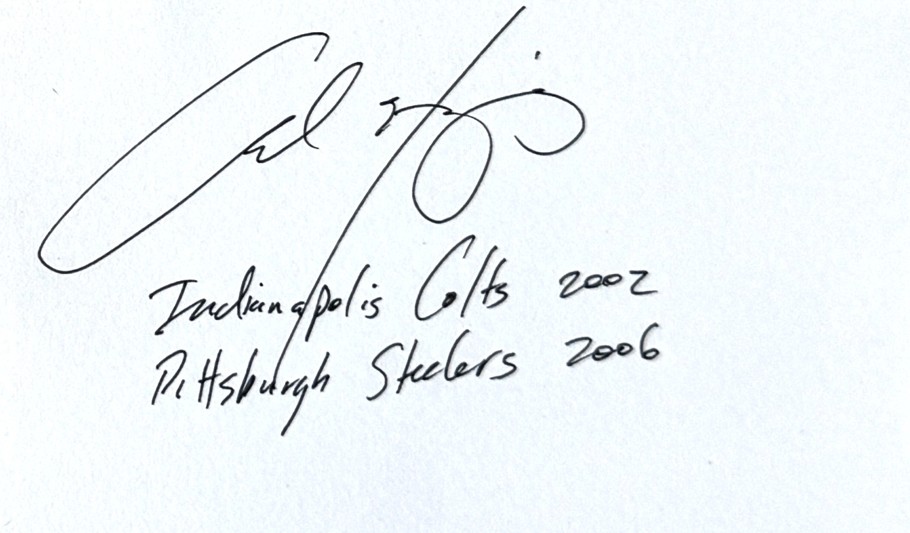 Indianapolis Colts 2002
Pittsburgh Steelers 2006